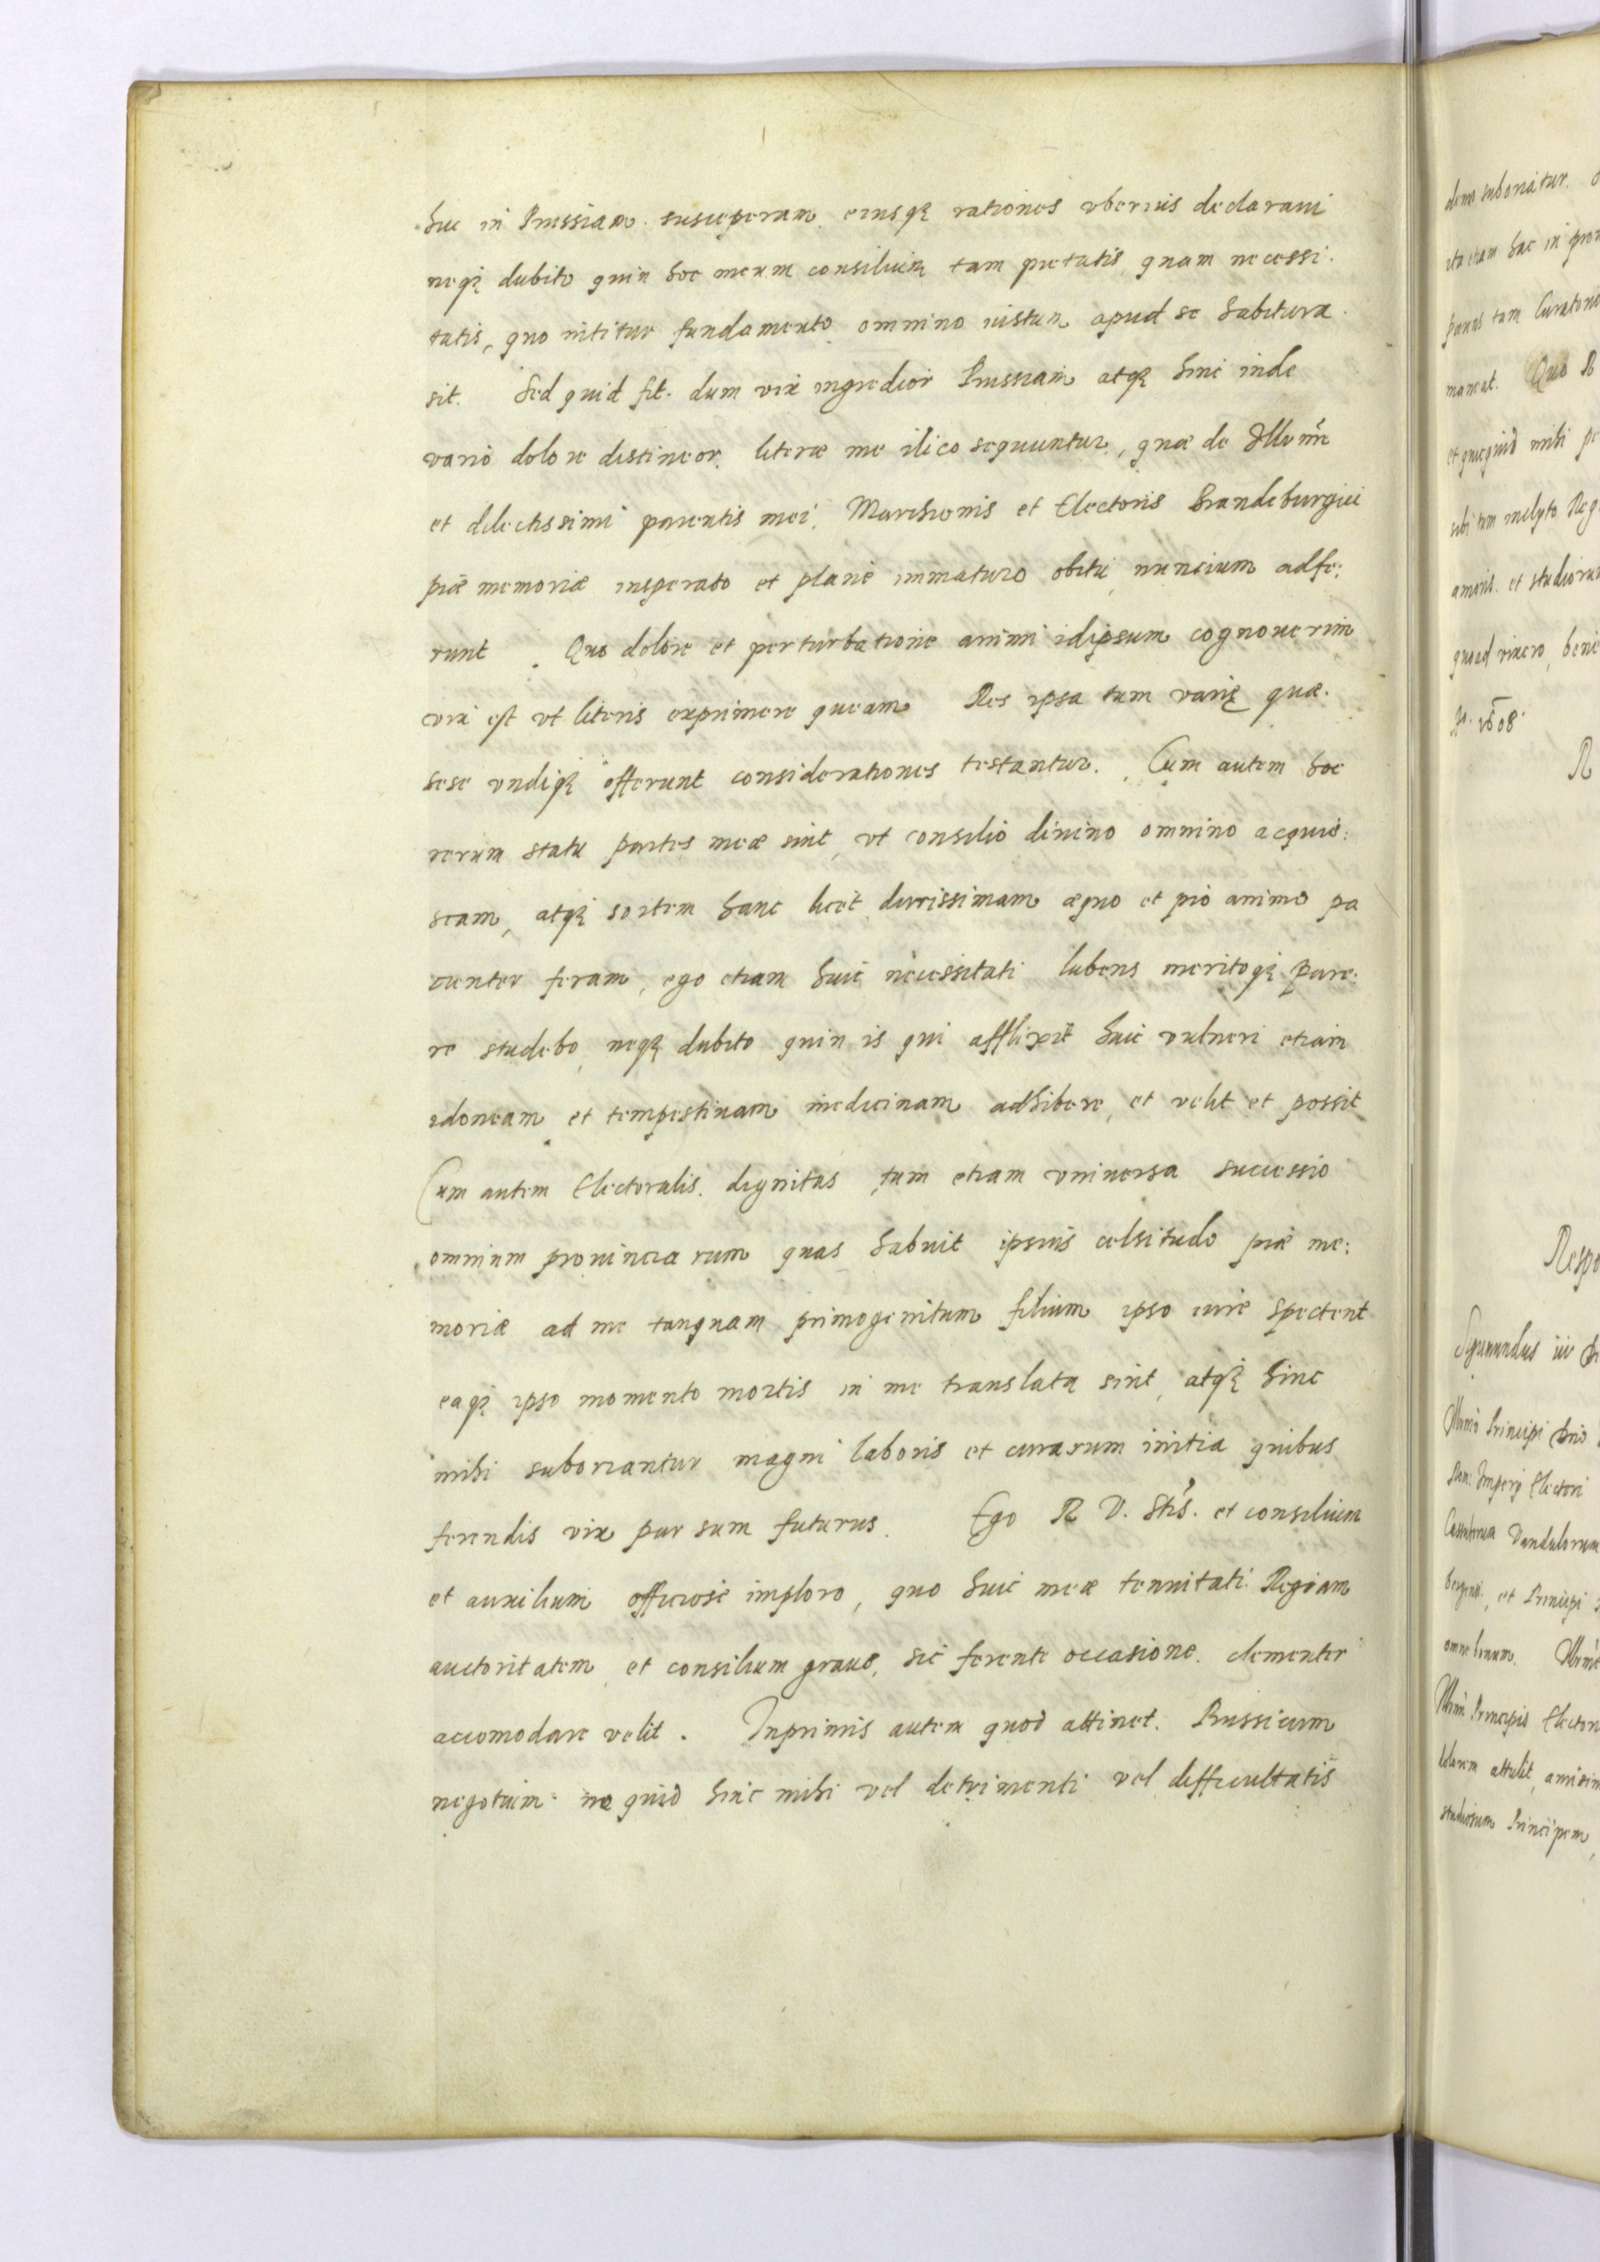 huc in Prussiam susceperam eiusq₃ rationes vberius declaraui
neq₃ dubito quin hoc meum consilium tam pietatis quam necessi.
tatis, quo nititur fundamento omnino iustum apud se habitura
sit. Sed quid fit. dum vix ingredior Prussiam atq₃ hinc inde
vario dolore distineor. literæ me ilico sequuntur, quæ de Illmi
et dilectissimi parentis mei. Marchionis et Electoris Brandeburgici
piæ memoriæ insperato et planè immaturo obitu, nuncium adfe:
runt. Quo dolore et perturbatione animi idipsum cognouerim
vix est vt literis exprimere queam Res ipsa tum varię quæ.
sese vndiq₃ offerunt considerationes testantur. Cum autem hoc
rerum statu partes meæ sint, vt consilio diuino omnino acquie:
scam, atq₃ sortem hanc licet durissimam æquo et pio animo pa
cienter feram, ego etiam huic necessitati lubens meritoq₃ pare.
re studebo, neq₃ dubito quin is qui afflixit huic vulneri etiam
idoneam et tempestiuam medicinam adhibere, et velit et possit
Cum autem Electoralis dignitas tum etiam vniuersa successio
omnium prouinciarum quas habuit ipsius celsitudo piæ me:
moriæ ad me tanquam primogenitum filium ipso iure spectent
eaq₃ ipso momento mortis in me translata sint, atq₃ hinc
mihi suboriantur magni laboris et curarum initia quibus
ferendis vix par sum futurus. Ego R V. Stis. et consilium
et auxilium officiosè imploro, quo huic meæ tenuitati Regiam
auctoritatem et consilium graue, sic ferente occasione. clementer
accomodare velit. Inprimis autem quod attinet. Prussicum
negotium ne quid hinc mihi vel detrimenti vel difficultatis
mancat. Quo R
et quicquid mihi
amoris. et studiorum
quoad vixero, bene
1608
R
Sigismundus iii
Principi
Imperij Electori
Vandalorum
et Principi
omne bonum.
Principis Elector
attulit
studiosum Principem,